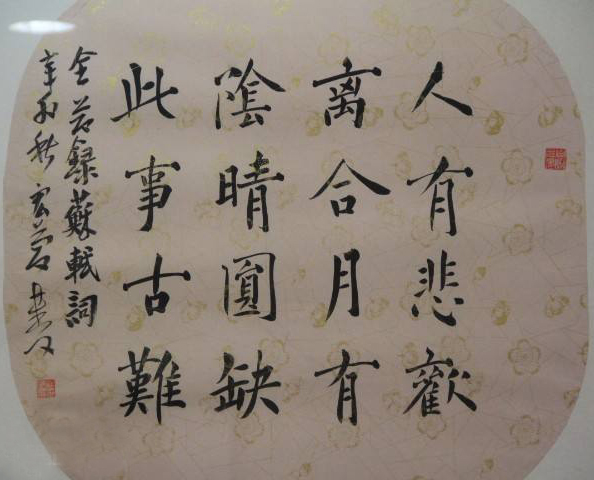 人有悲歡
离合月有
陰晴圓缺
此事古難
全 錄蘇軾詞
辛卯秋